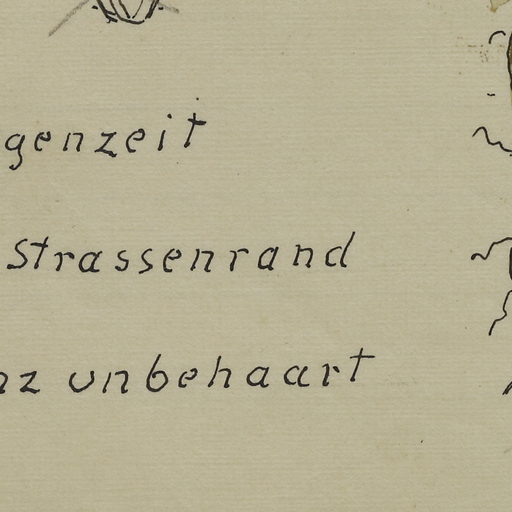 genzeit
Strassenrand
nz unbehaart